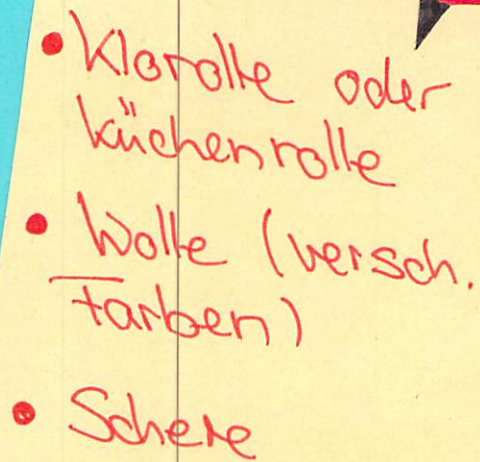 • Klorolle oder
Küchenrolle
• Wolle (versch.
Farben)
• Schere